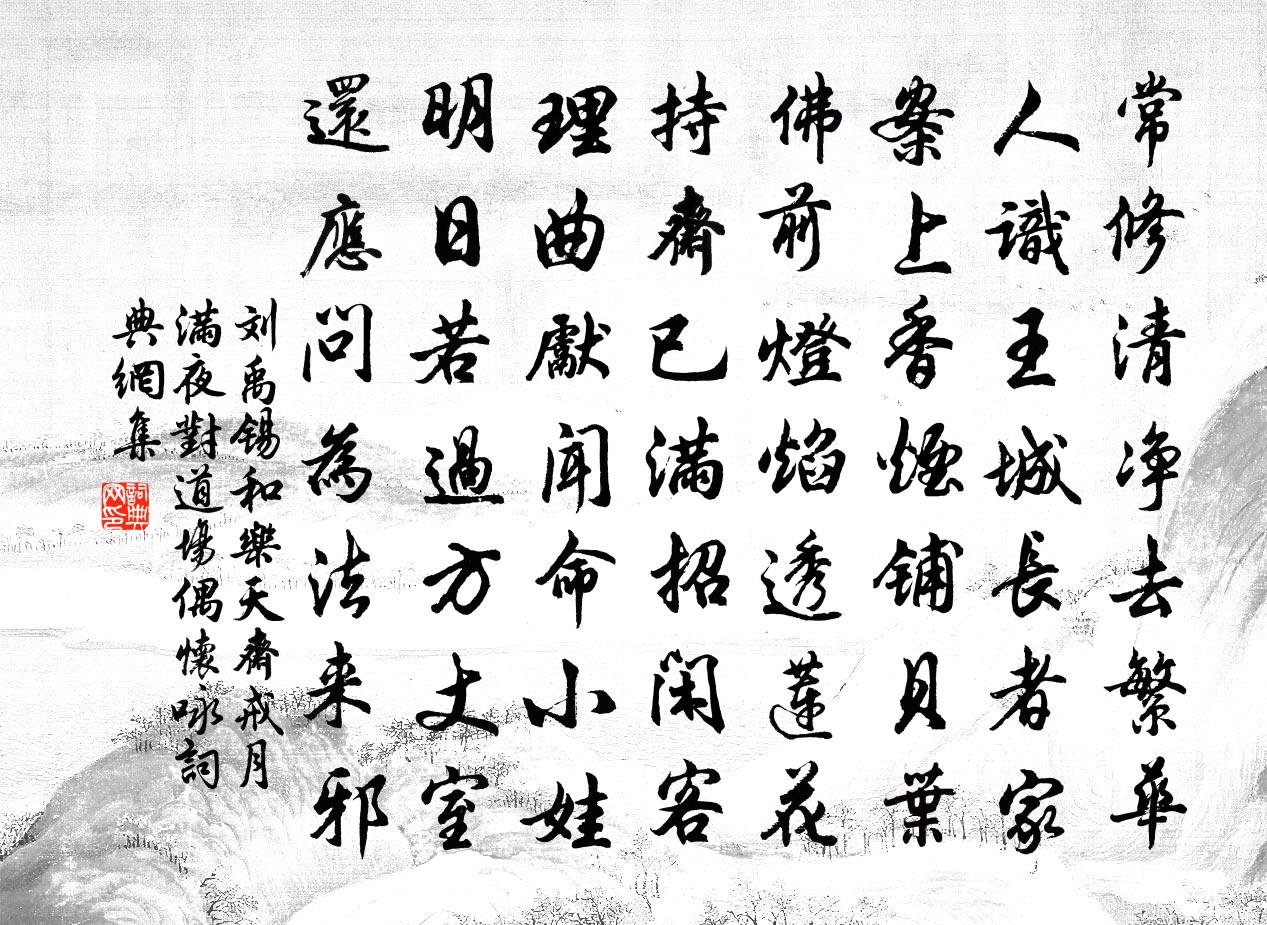 常修清净去繁華
人識王城長者家
案上香煙鋪貝葉
佛前燈焰透蓮花
持齋已滿招閑客
理曲獻聞命小娃
明日若過方丈室
還應問為法来邪
刘禹锡和樂天齋戒月
滿夜對道場偶懷咏詞
典網集
詞典网印